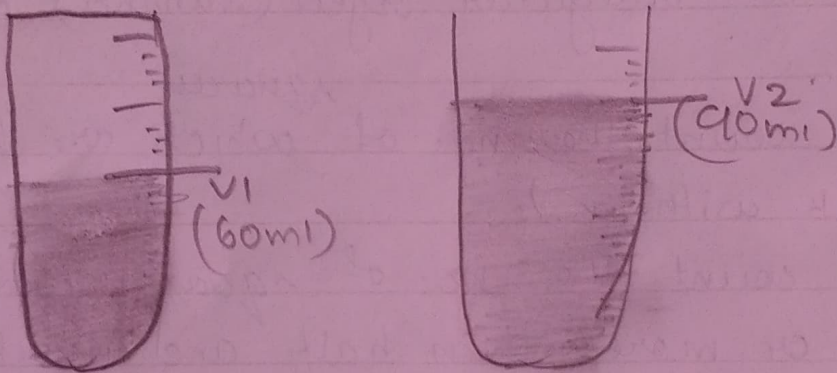 V1
(60ml)
V2
(90ml)